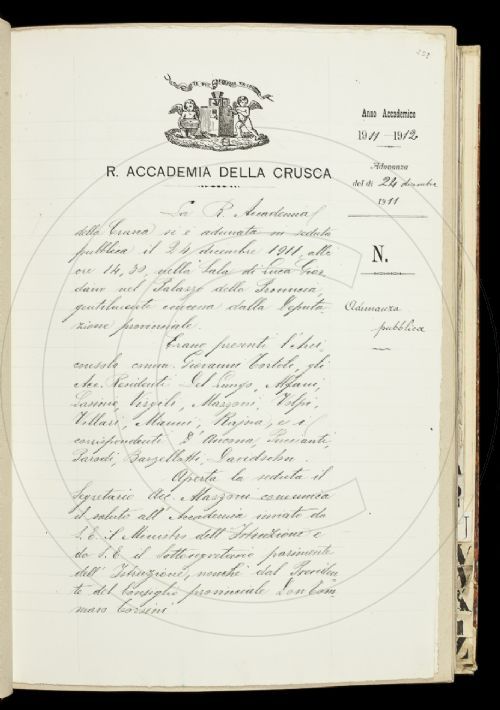 R. ACCADEMIA DELLA CRUSCA
Anno Accademico
1911-1912
Adunanza
del dì 24 dicembre
1911
N.
Adunanza
pubblica
La R. Accademia
della Crusca si è adunata in seduta
pubblica il 24 decembre 1911, alle
ore 14,30, nella Sala di Luca Gior
dano nel Palazzo della Provincia,
gentilmente concessa dalla Deputa
zione provinciale.
Erano presenti l'Arci
consolo comm. Giovanni Tortoli, gli
Acc. Residenti Del Lungo, Alfani,
Lasinio, Virgili, Mazzoni, Volpi,
Villari, Maurri, Rajna, e i
corrispondenti D'Ancona, Puccianti,
Parodi, Barzellotti, Davidsohn.
Aperta la seduta il
Segretario Acc. Mazzoni comunica
il saluto all'Accademia inviato da
S. E. il Ministro dell'Istruzione e
da S. E. il Sottosegretario parimente
dell'Istruzione, nonché dal Presiden
te del Consiglio provinciale Don Tom
maso Corsini